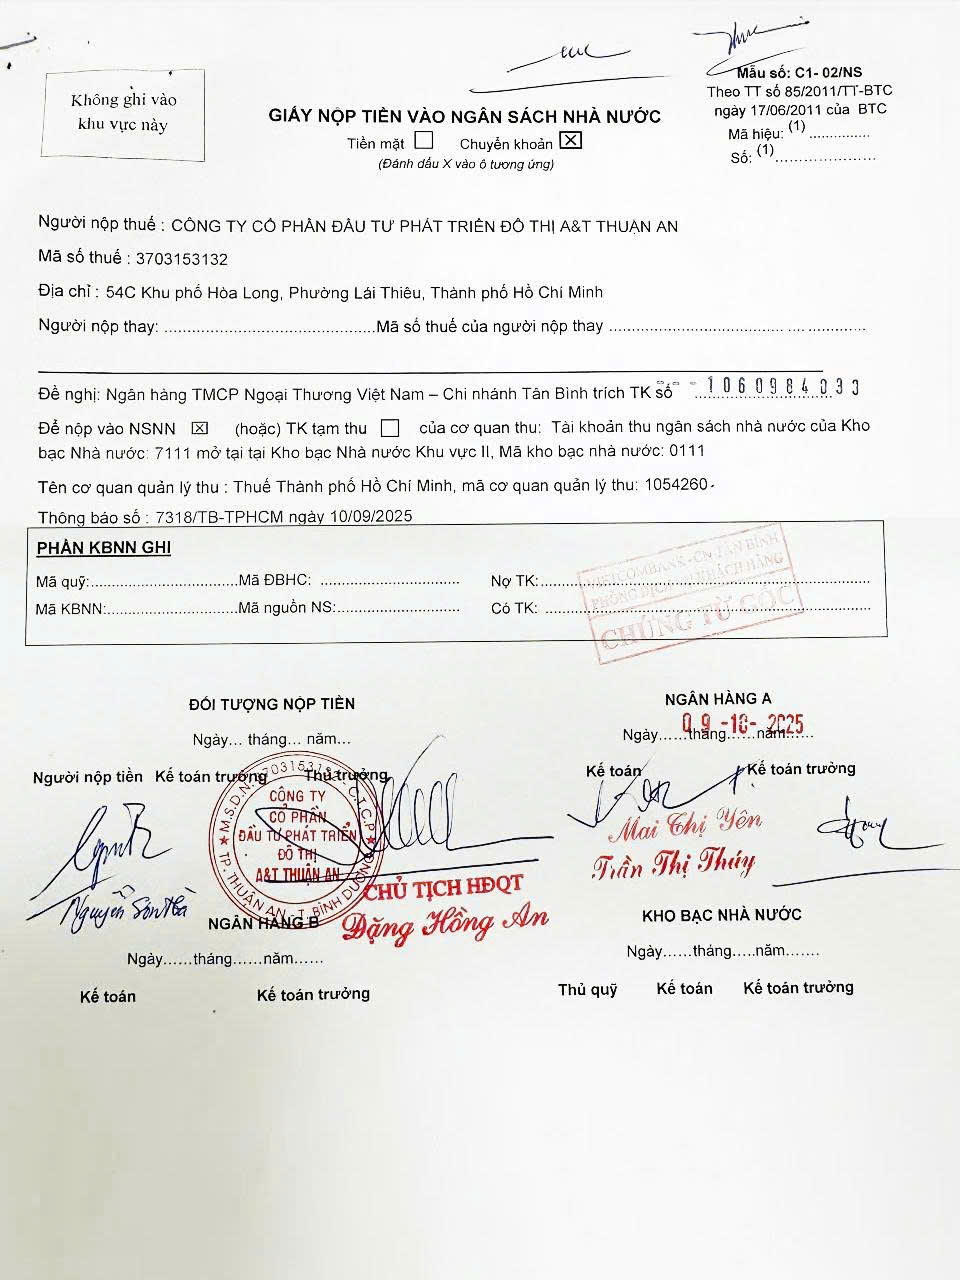 Không ghi vào
khu vực này
Mẫu số: C1- 02/NS
Theo TT số 85/2011/TT-BTC
ngày 17/06/2011 của BTC
Mã hiệu: (1) ...............
Số: (1).........................
GIẤY NỘP TIỀN VÀO NGÂN SÁCH NHÀ NƯỚC
Tiền mặt ☐ Chuyển khoản ☒
(Đánh dấu X vào ô tương ứng)
Người nộp thuế : CÔNG TY CỔ PHẦN ĐẦU TƯ PHÁT TRIỂN ĐÔ THỊ A&T THUẬN AN
Mã số thuế : 3703153132
Địa chỉ : 54C Khu phố Hòa Long, Phường Lái Thiêu, Thành phố Hồ Chí Minh
Người nộp thay: ..........................................Mã số thuế của người nộp thay ..................................................
Đề nghị: Ngân hàng TMCP Ngoại Thương Việt Nam – Chi nhánh Tân Bình trích TK số 1060984033
Để nộp vào NSNN ☒ (hoặc) TK tạm thu ☐ của cơ quan thu: Tài khoản thu ngân sách nhà nước của Kho
bạc Nhà nước: 7111 mở tại tại Kho bạc Nhà nước Khu vực II, Mã kho bạc nhà nước: 0111
Tên cơ quan quản lý thu : Thuế Thành phố Hồ Chí Minh, mã cơ quan quản lý thu: 1054260
Thông báo số : 7318/TB-TPHCM ngày 10/09/2025
PHẦN KBNN GHI
Mã quỹ:..............................Mã ĐBHC: ............................ Nợ TK:..................................................
Mã KBNN:..........................Mã nguồn NS:......................... Có TK: ..................................................
VIETCOMBANK - CN TÂN BÌNH
PHÒNG DỊCH VỤ KHÁCH HÀNG
CHỨNG TỪ GỐC
ĐỐI TƯỢNG NỘP TIỀN
Ngày... tháng... năm...
Người nộp tiền Kế toán trưởng Thủ trưởng
NGÂN HÀNG A
09-10-2025
Ngày......tháng......năm......
Kế toán Kế toán trưởng
CÔNG TY
CỔ PHẦN
ĐẦU TƯ PHÁT TRIỂN
ĐÔ THỊ
A&T THUẬN AN
TP. THUẬN AN - T. BÌNH DƯƠNG
CHỦ TỊCH HĐQT
Đặng Hồng An
Mai Thị Yên
Trần Thị Thúy
NGÂN HÀNG B
Ngày......tháng......năm......
Kế toán Kế toán trưởng
KHO BẠC NHÀ NƯỚC
Ngày......tháng.....năm.......
Thủ quỹ Kế toán Kế toán trưởng